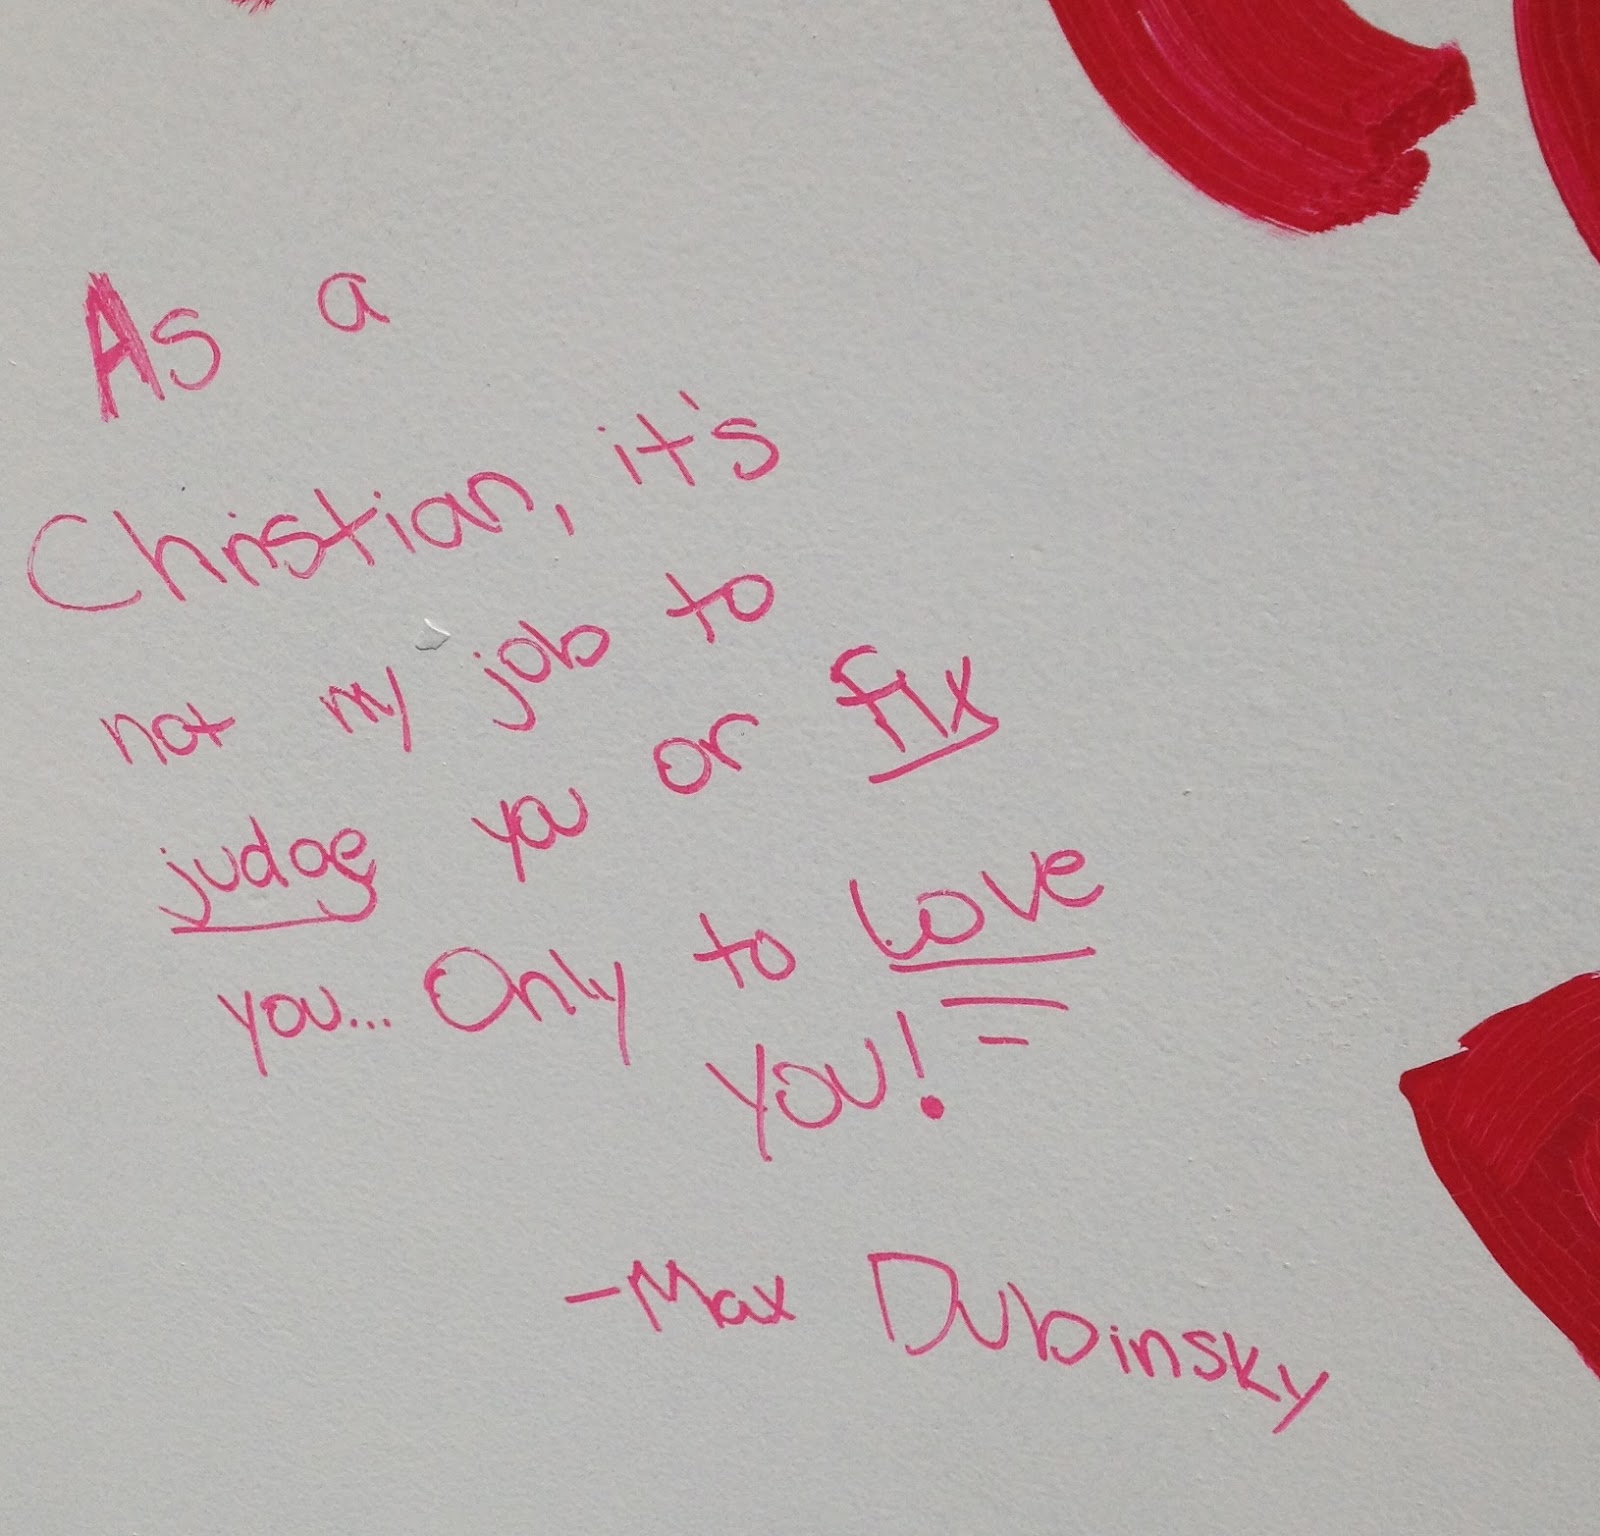 As a
Christian, it's
not my job to
judge you or fix
you... Only to Love
you!
-Max Dubinsky